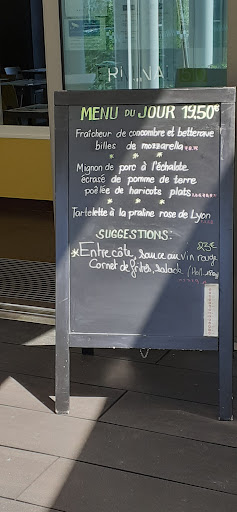 MENU DU JOUR 19.50€
Fraîcheur de concombre et betterave
billes de mozzarella
Mignon de porc à l'échalote
écrasé de pomme de terre
poêlée de haricots plats
Tartelette à la praline rose de Lyon
SUGGESTIONS:
Entrecôte, sauce au vin rouge 23€
Cornet de frites, salade